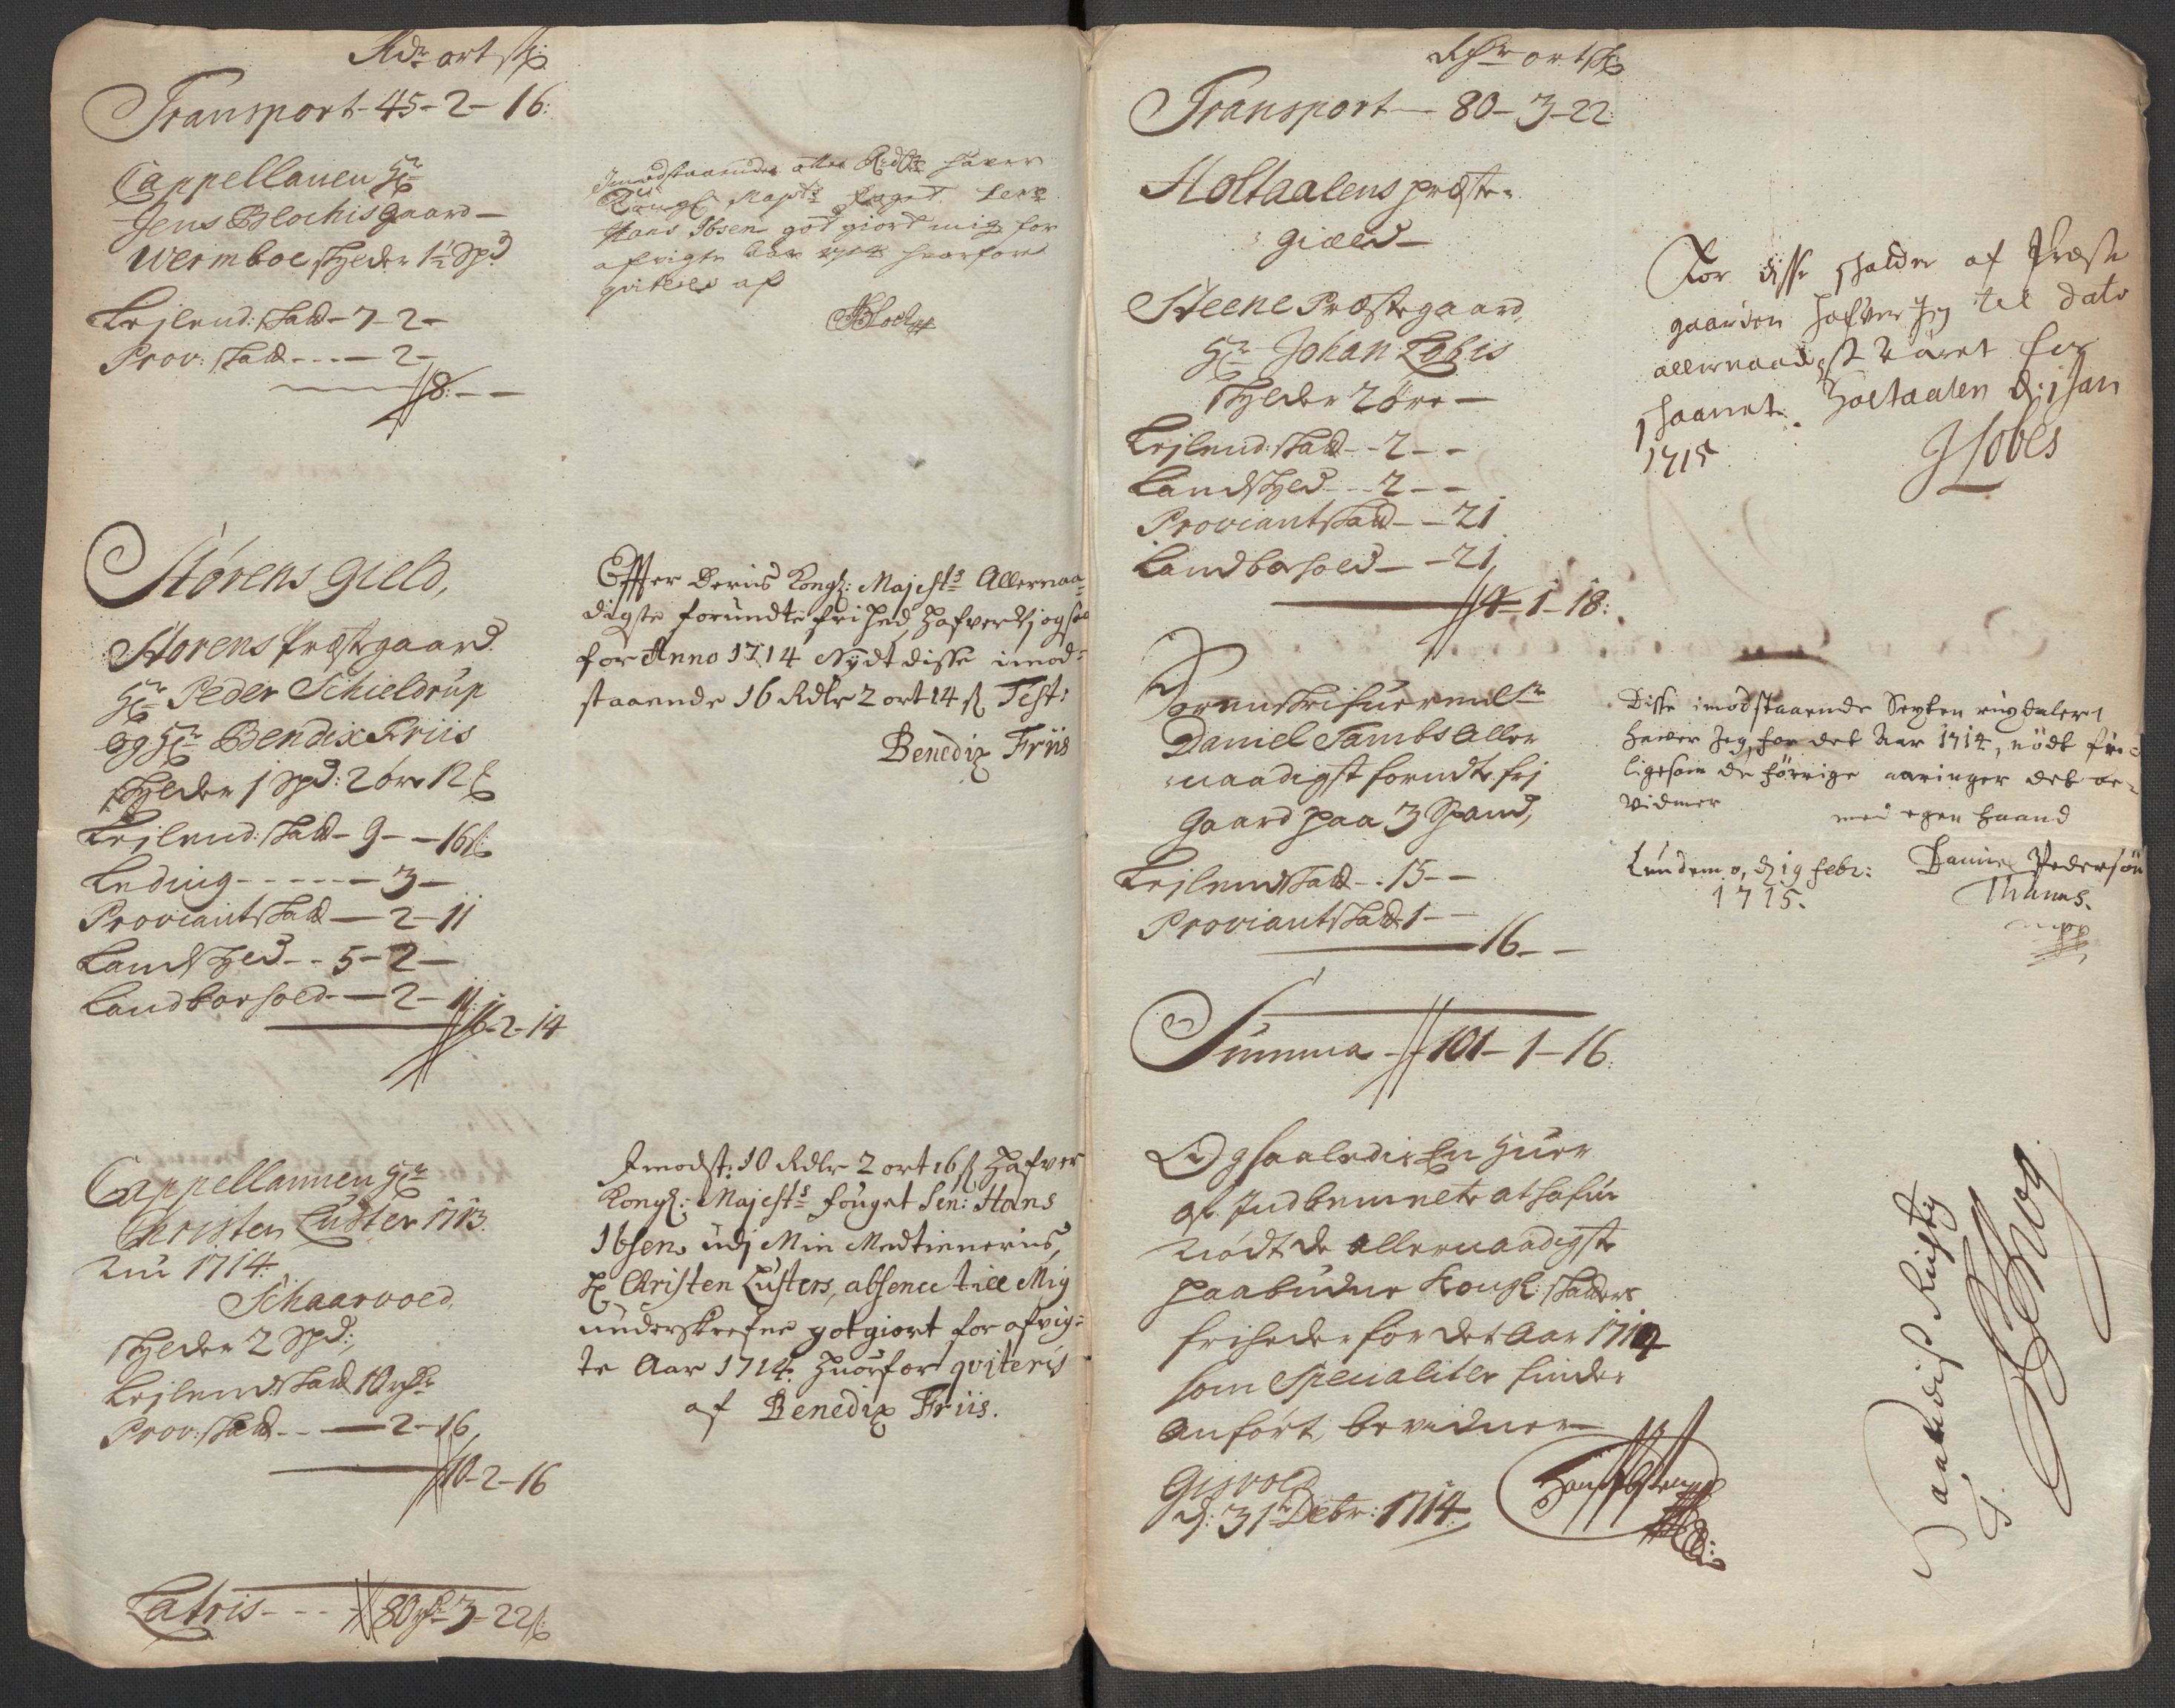 Rdr ort ß
Transport - 45 - 2 - 16:
Cappellanen Hr
Jens Blochis gaard -
Wermboe skylder 1½ Spd
Lejlend: Skatt - 7 - 2 -
Prov: skatt - - - 2 -
8: - -
Imodstaaende otte Rdlr hafver
Kongl Maysts foget Senr
Hans Ibsen godgiort mig for
afvigte Aar 1714 hvorfore
qviteres af
JBloch
Størens gield,
Størens Præstgaard
Hr Peder Schieldrup
og Hr Bendix Friis
skylder 1 Spd: 2 øre 12 ß
Lejlend: skatt - 9 - - 16 ß:
Leding - - - - - 3 -
Proviantskatt - 2 - 11
Landskyld - - 5 - 2 -
Landborhold - - 2 - 11:
16 - 2 - 14
Effter Deris Kongl: Majests Allernaa-
digste forundte frihed, hafver vj ogsaa
for Anno 1714 Nydt disse imod-
staaende 16 Rdlr 2 ort 14 ß Test:
Benedix Friis
Cappellannen Hr
Christen Luster 1713.
nu 1714.
Schaarvold,
skylder 2 Spd:,
Lejlend: skatt 10 rdr
Prov: skatt - - - 2 - 16,
10 - 2 - 16
Imodst: 10 Rdlr 2 ort 16 ß hafver
Kongl: Majests fouget Sen: Hans
Ibsen udj Min Medtieneris,
Hr Christen Lusters, absence till Mig
underskrefne gotgiort for afvig-
te Aar 1714. huorfor qviteris
af Benedix Friis.
Latris - - - 80 rdr 3 - 22 ß
Rdr ort ß
Transport - 80 - 3 - 22
Holtaalens præste-
giæld -
Steene Præstegaard,
Hr Johan Lobis
skylder 2 øre -
Lejlend: skatt - - 2 - -
Landskyld - - 2 - -
Proviantskatt - - 21
Landborhold - - 21,
4 - 1 - 18:
For disse skatder af Præste
gaarden hafver Jeg til dato
allernaadigst været for
skaanet. Holtaalen d: 1 Jan
1715
JLobes
Sorenskrifueren Sr
Daniel Tambs Aller
naadigst forundte frj
Gaard paa 3 Spand,
Lejlendskatt - - 15 - -
Proviantskatt 1 - -
16 - -
Disse imodstaaende Sexten rixdaler
hafver Jeg, for det Aar 1714, nødt fri
ligesom de forrige aaringer det be-
vidner
med egen haand
Lundemo, d 19 febr:
1715.
Daniel Pedersøn
Thams.
mpp
Summa - 101 - 1 - 16:
Ogsaaledis En huer
af Indbemelte at hafue
Nødt de allernaadigste
paabudne Kongl: skatters
friheder for det Aar 1714
som Specialiter findes
Anført, bevidner
Gisvold
d: 31te Decbr: 1714
Hans Ibsen